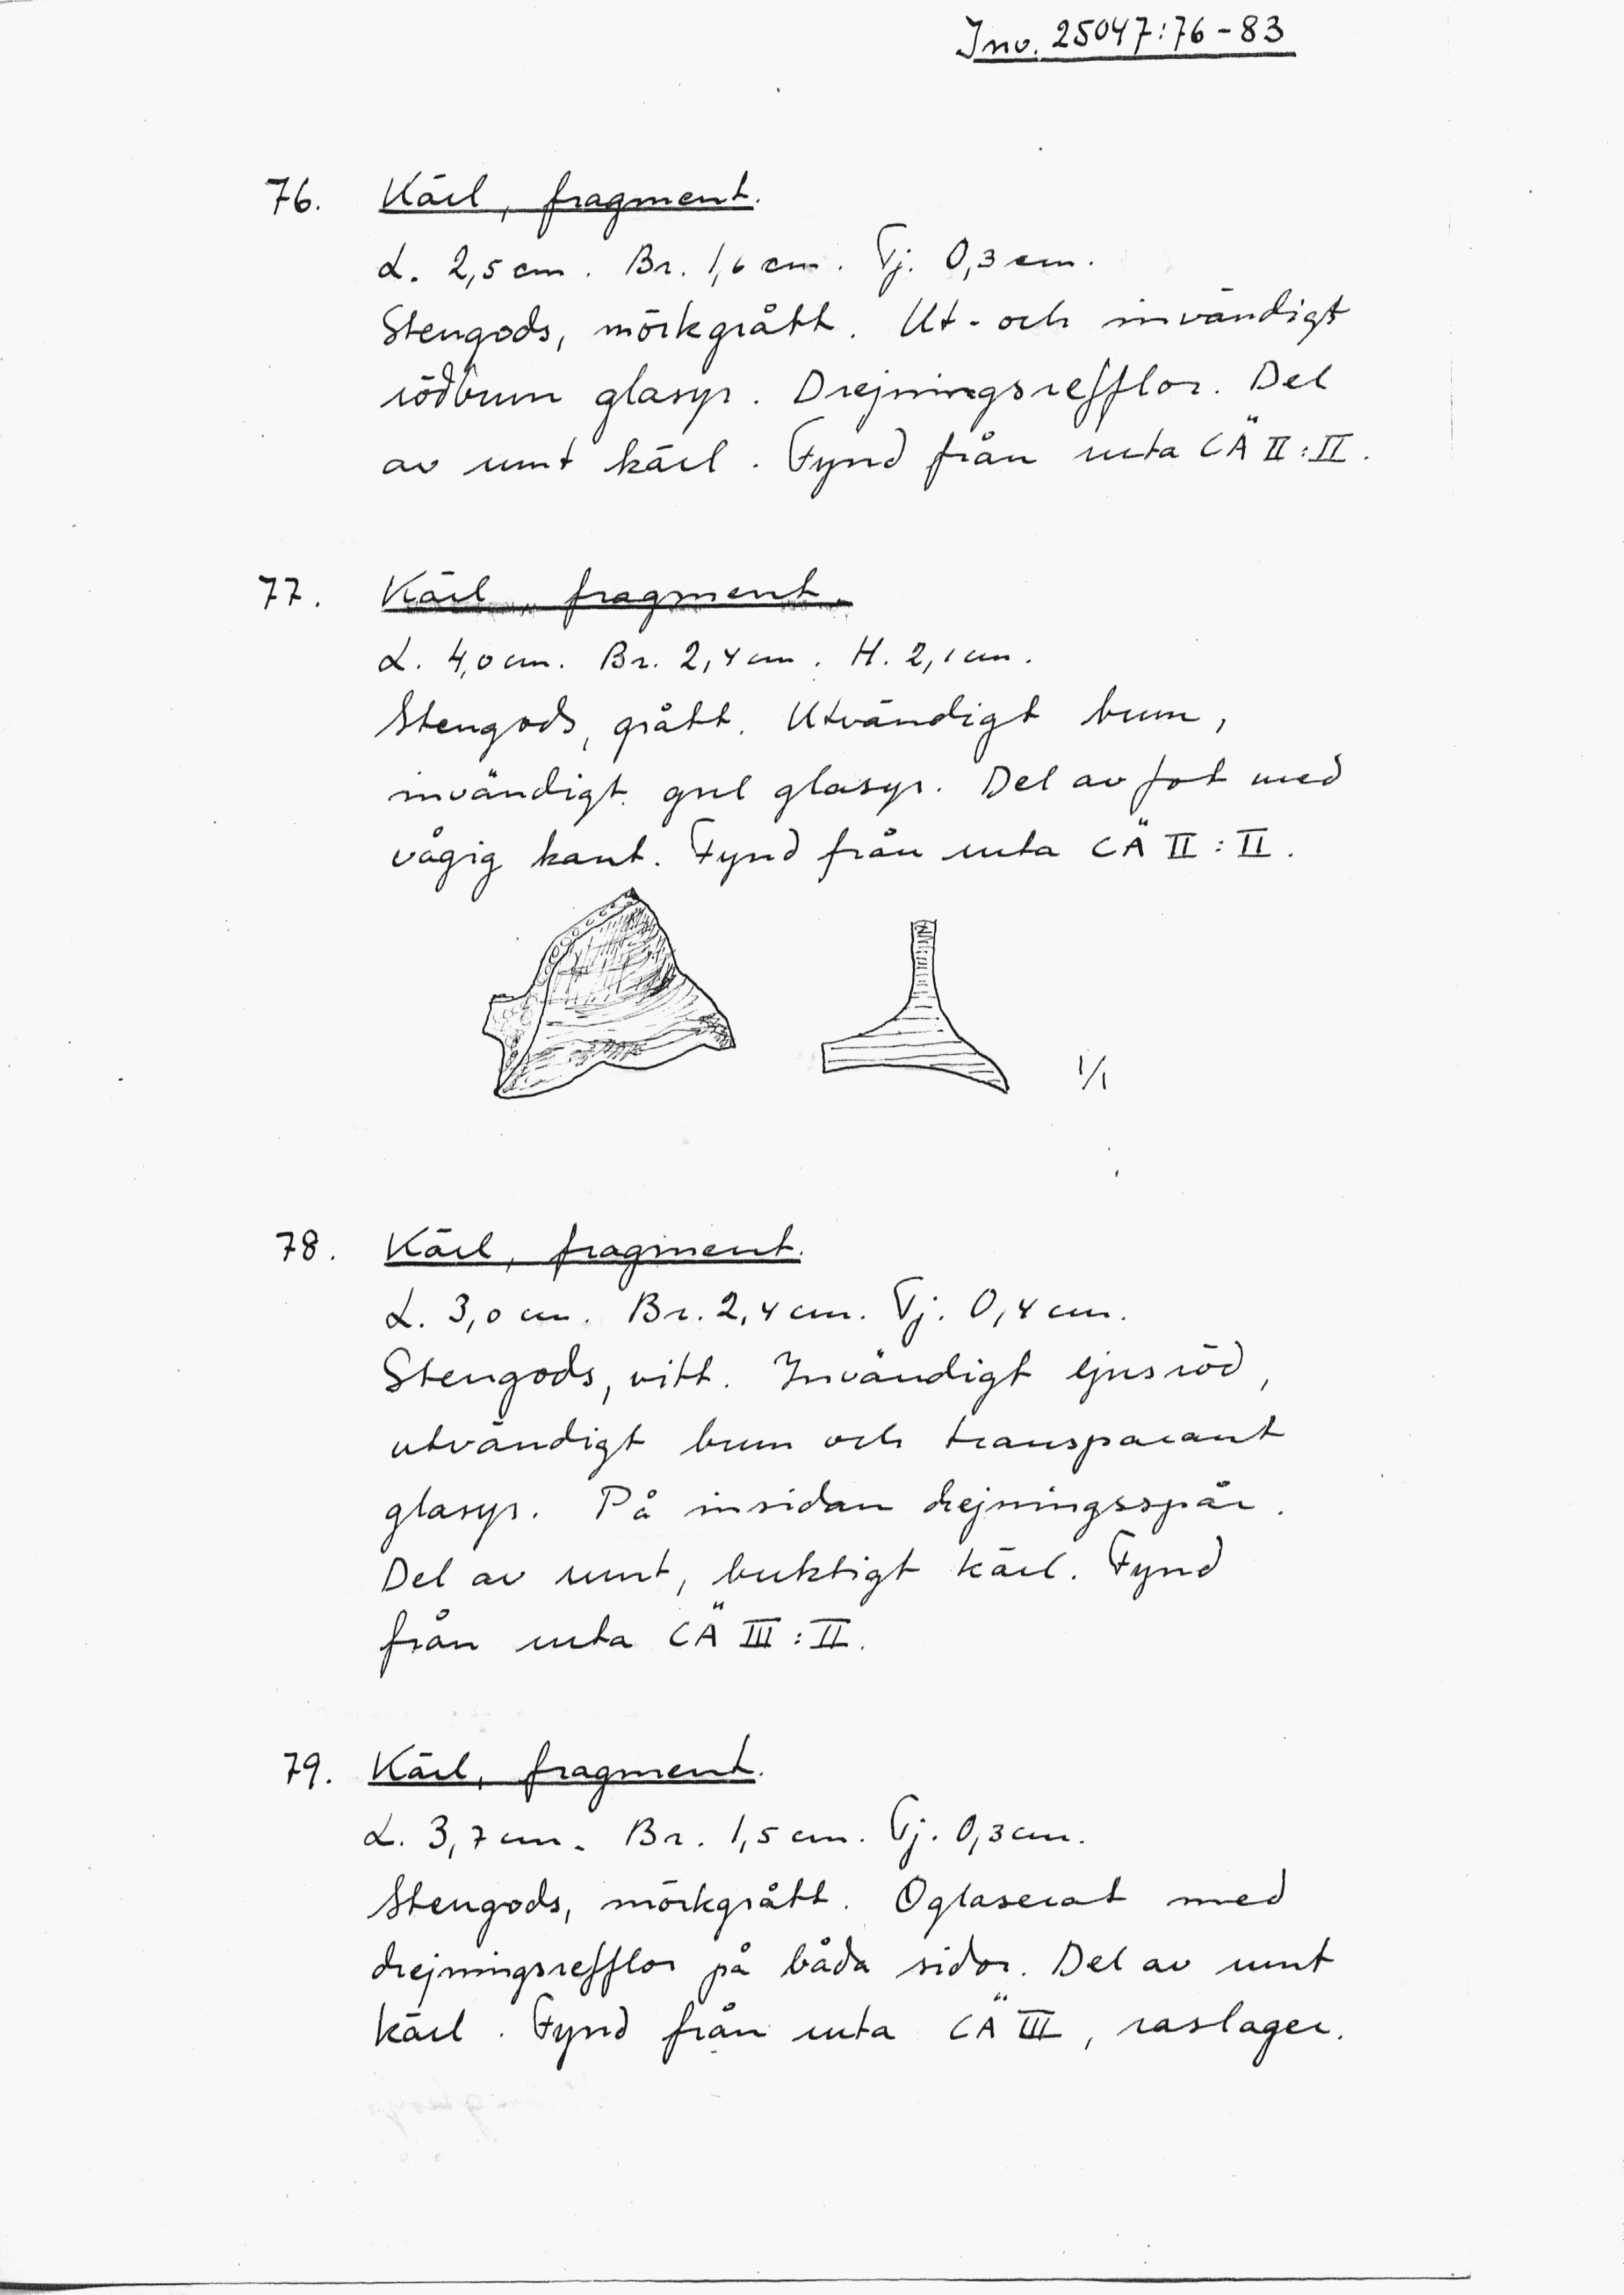 Inv. 25047:76-83
76. Kärl, fragment.
L. 2,5 cm. Br. 1,6 cm. Tj. 0,3 cm.
Stengods, mörkgrått. Ut- och invändigt
rödbrun glasyr. Drejningsrefflor. Del
av runt kärl. Fynd från ruta CÄ II:II.
77. Kärl, fragment.
L. 4,0 cm. Br. 2,4 cm. H. 2,1 cm.
Stengods, grått. Utvändigt brun,
invändigt gul glasyr. Del av fot med
vågig kant. Fynd från ruta CÄ II:II.
1/1
78. Kärl, fragment.
L. 3,0 cm. Br. 2,4 cm. Tj. 0,4 cm.
Stengods, vitt. Invändigt ljusröd,
utvändigt brun och transparant
glasyr. På insidan drejningsspår.
Del av runt, buktigt kärl. Fynd
från ruta CÄ III:II.
79. Kärl, fragment.
L. 3,7 cm. Br. 1,5 cm. Tj. 0,3 cm.
Stengods, mörkgrått. Oglaserat med
drejningsrefflor på båda sidor. Del av runt
kärl. Fynd från ruta CÄ III, raslager.